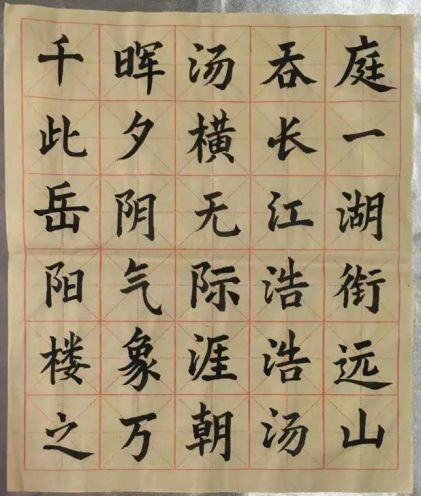 庭一湖衔远山
吞长江浩浩汤
汤横无际涯朝
晖夕阴气象万
千此岳阳楼之